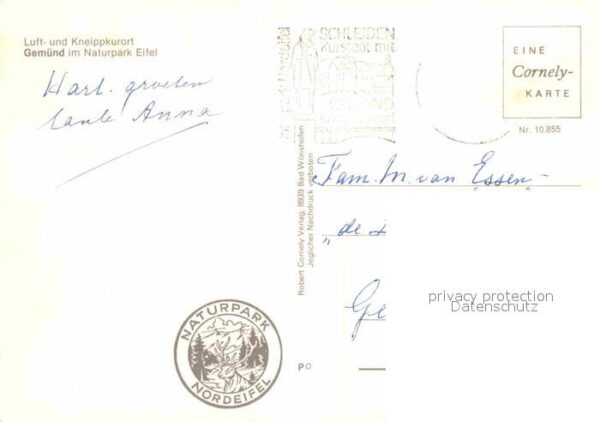 Luft- und Kneippkurort
Gemünd im Naturpark Eifel
Hart. groeten
tante Anna
SCHLEIDEN
Kurstadt mit
GEMÜND
EINE
Cornely-
KARTE
Nr. 10.855
Robert Cornely Verlag, 8939 Bad Wörishofen
Jeglicher Nachdruck verboten
Fam. M. van Essen-
"de
Ge
privacy protection
Datenschutz
NATURPARK
NORDEIFEL
PO